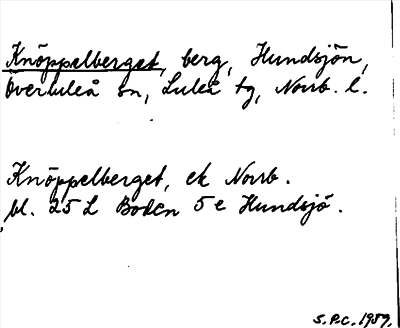 Knöppelberget, berg, Hundsjön,
Överluleå sn, Luleå tg, Norrb. l.
Knöppelberget, ek Norrb.
bl. 25 L Boden 5 e Hundsjö.
S.P.C. 1959.